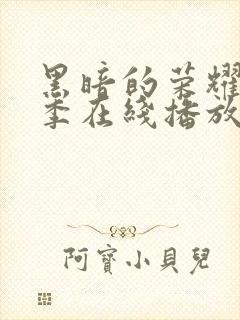 黑暗的荣耀
季在綫播放
阿寶小貝兒